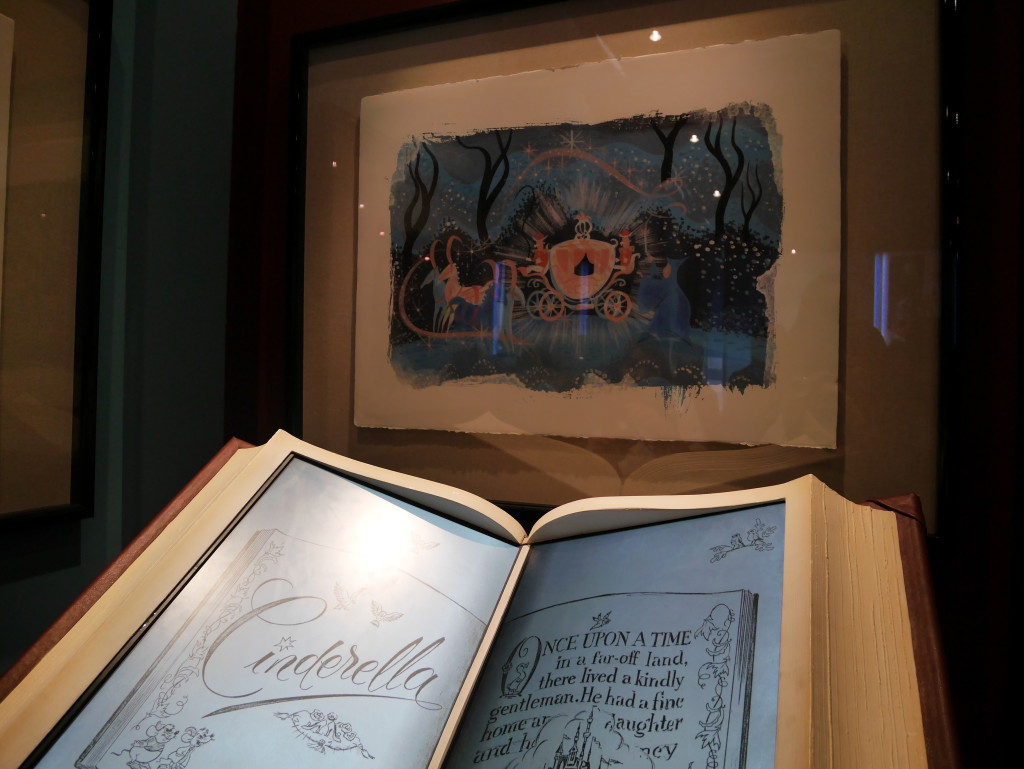 Cinderella
ONCE UPON A TIME
in a far-off land,
there lived a kindly
gentleman. He had a fine
home daughter
and